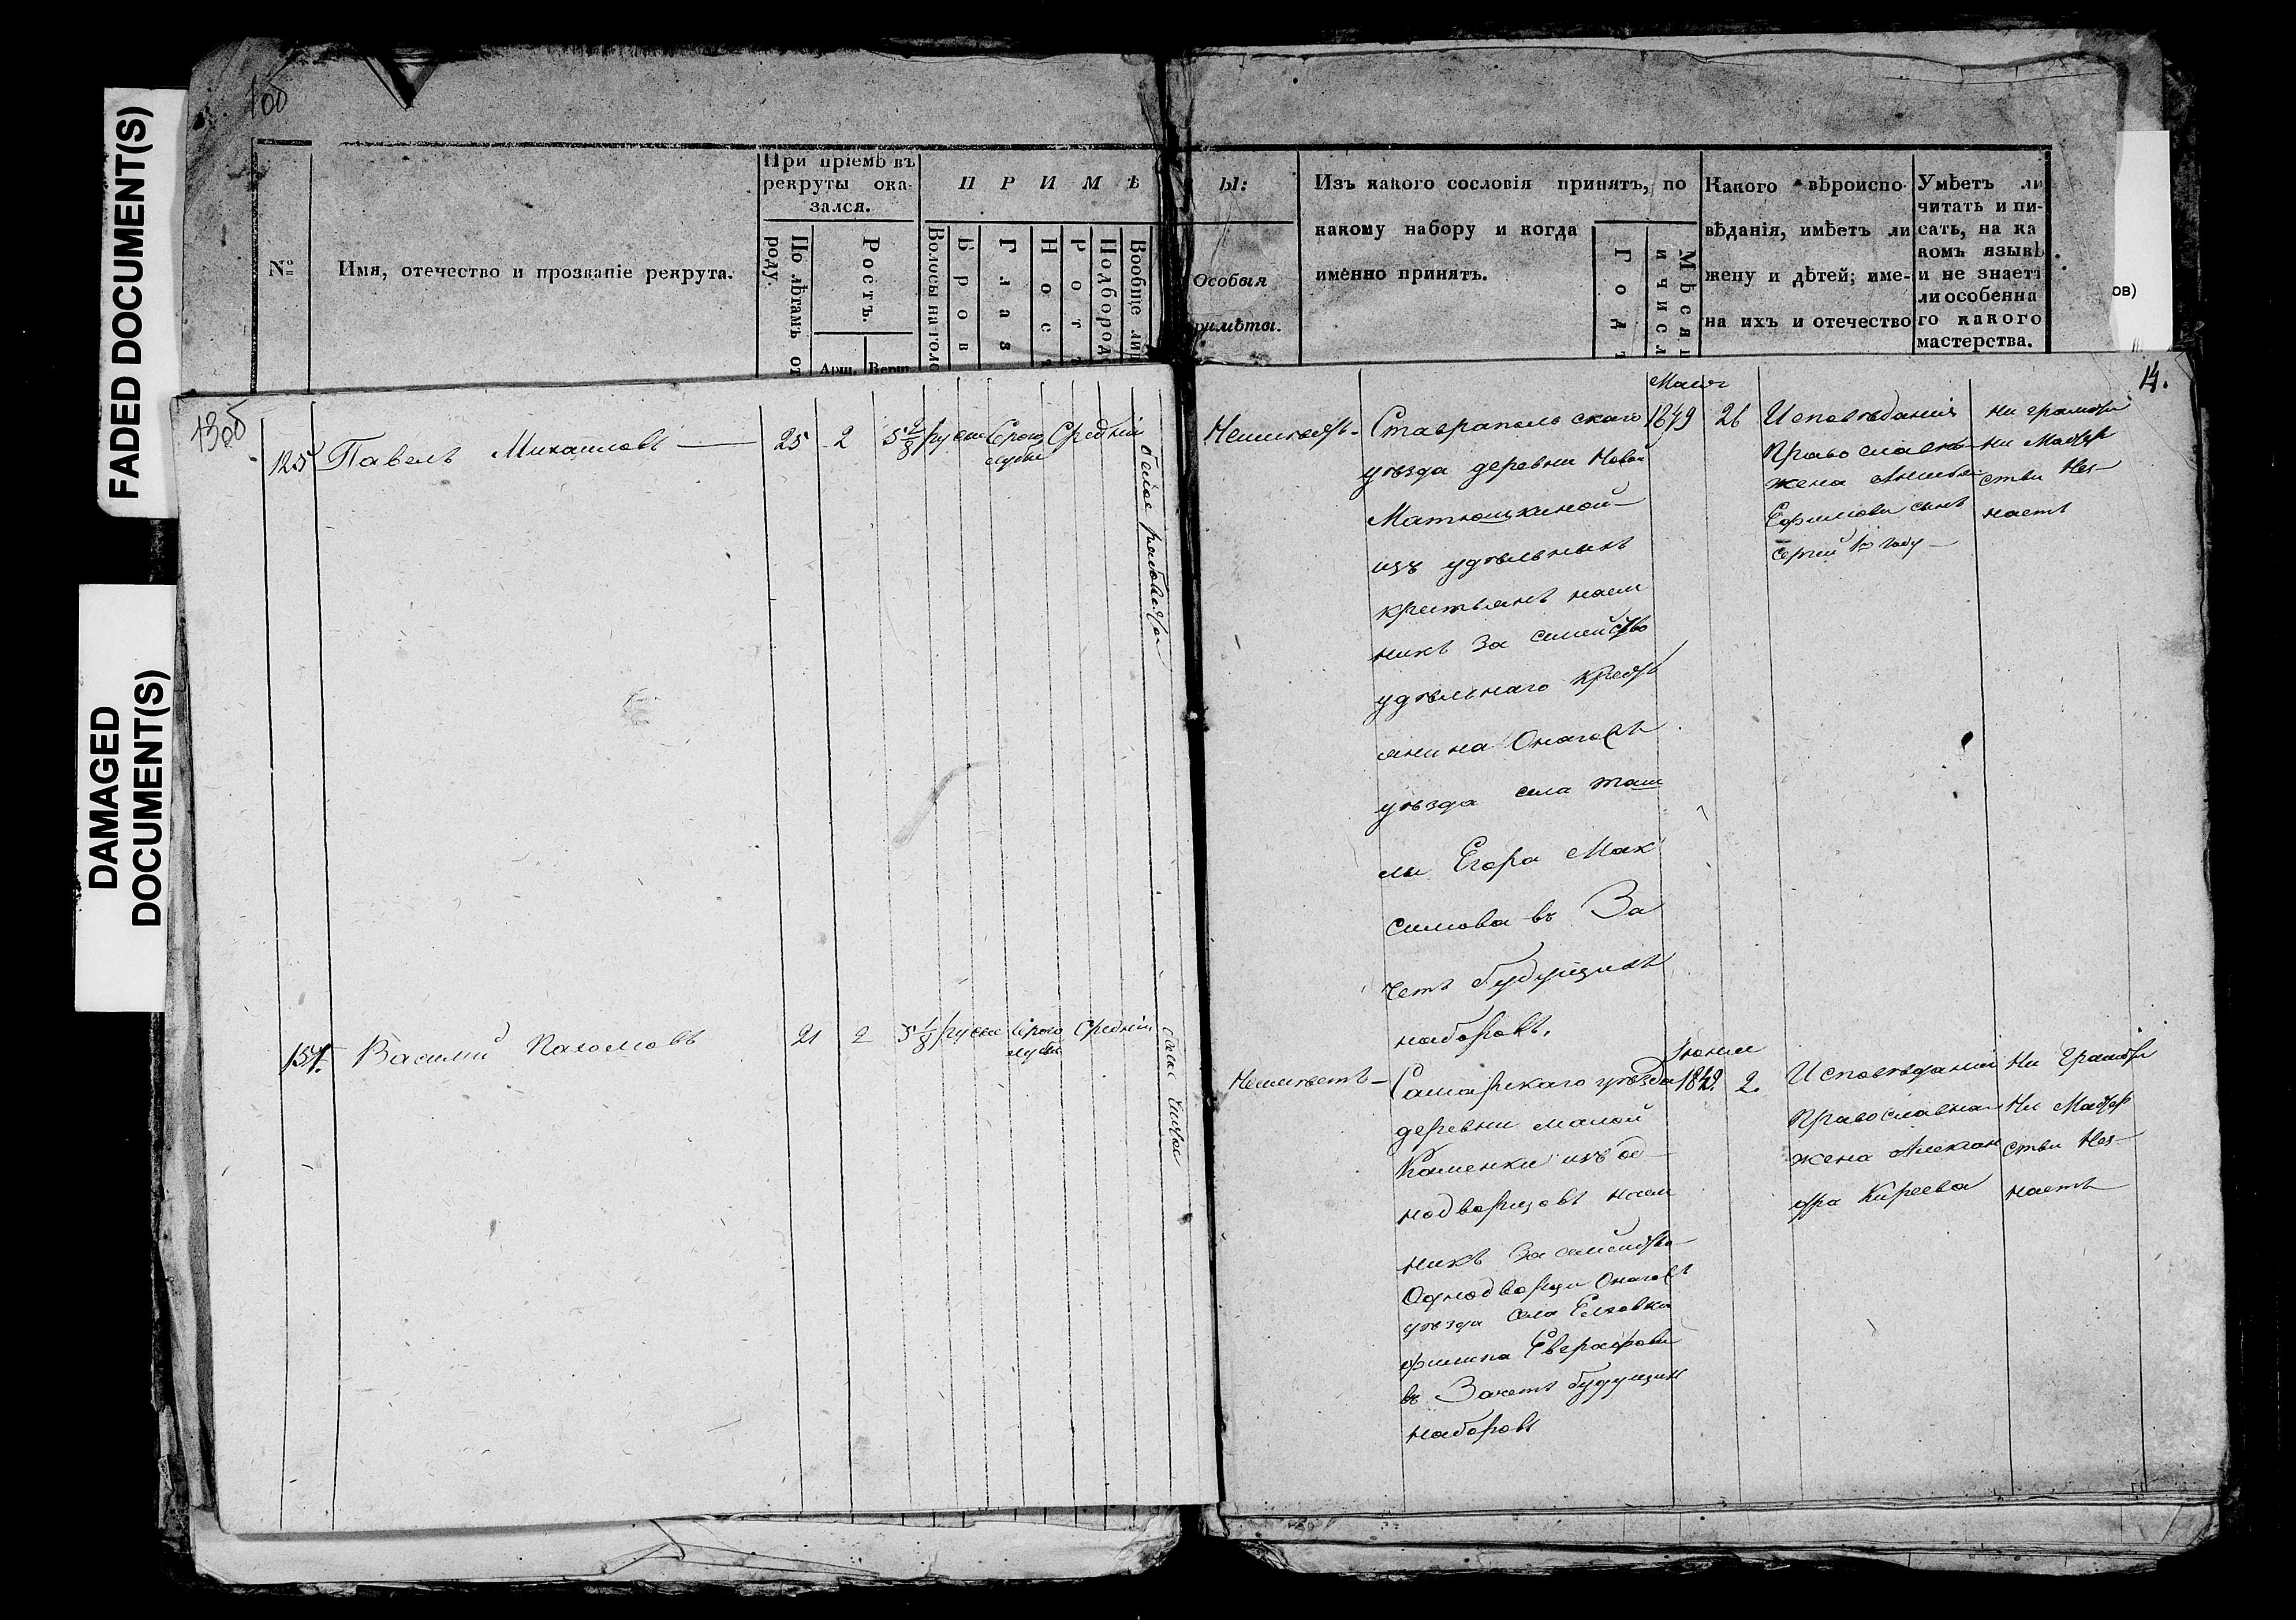 FADED DOCUMENT(S)
DAMAGED
DOCUMENT(S)
ов)
№
Имя, отечество и прозваніе рекрута.
При пріемѣ въ
рекруты ока-
зался.
По лѣтамъ от
роду.
Ростъ.
Арш.
Верш.
П Р И М Ѣ
Волосы на голо
Бров
Глаз
Нос
Рот
Подбород
Вообще ли
Ы:
Особыя
римѣты.
Изъ какого сословія принятъ, по
какому набору и когда
именно принятъ.
Год
Мѣсяц
и числ
Какого вѣроиспо-
вѣданія, имѣетъ ли
жену и дѣтей; име-
на ихъ и отечество
Умѣетъ ли
читать и пи-
сать, на ка
комъ языкѣ
и не знаетъ
ли особенна
го какого
мастерства.
14.
130б
125
Павелъ Михаиловъ
25
2
5 2/8
русые
Серого
лубые
Средній
белое рябоватое
Неимѣетъ
Ставрапольскаго
уѣзда деревни Новой
Матюшкиной
изъ удѣльныхъ
крестьянъ наем
никъ за семейство
удѣльнаго Крест
янина Онагоже
уѣзда села Таш
лы Егора Мак
симова въ За
четъ будущихъ
наборовъ.
Маія
1849
26
Исповѣданія
Православна
жена Анисья
Ефимова сынъ
Сергей 1го году
ни грамоты
ни Мастер
ства Нез
наетъ
151.
Василий Пахомовъ
21
2
5 1/8
русые
Серого
лубые
Средній
белое чистое
Неимѣетъ
Самарскаго уѣзда
деревни малой
Каменки изъ од
нодворцовъ наем
никъ За семейство
Однодворца Онагоже
уѣзда Села Елховки
Филипа Евграфова
въ Зачетъ будущихъ
наборовъ
Іюния
1849.
2.
Исповѣданія
Православна
жена Алексан
дра Киреева
Ни Грамоты
Ни Мастер
ства Нез
наетъ